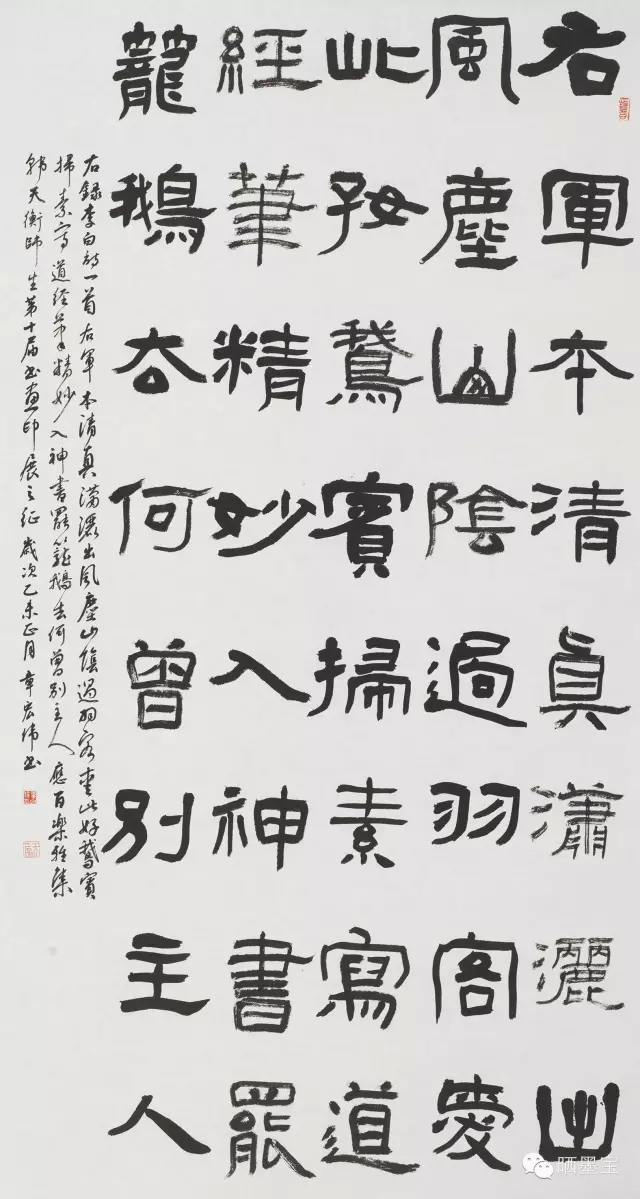 右軍本清真瀟灑出
風塵山陰過羽客愛
此好鵞賓掃素寫道
經筆精妙入神書罷
籠鵝去何曾別主人
右錄李白詩一首右軍本清真瀟灑出風塵山陰過羽客愛此好鵞賓
掃素寫道經筆精妙入神書罷籠鵝去何曾別主人應百樂雅集
韓天衡師生第十届书畫印展之征歲次乙未正月章宏伟书
晒墨宝